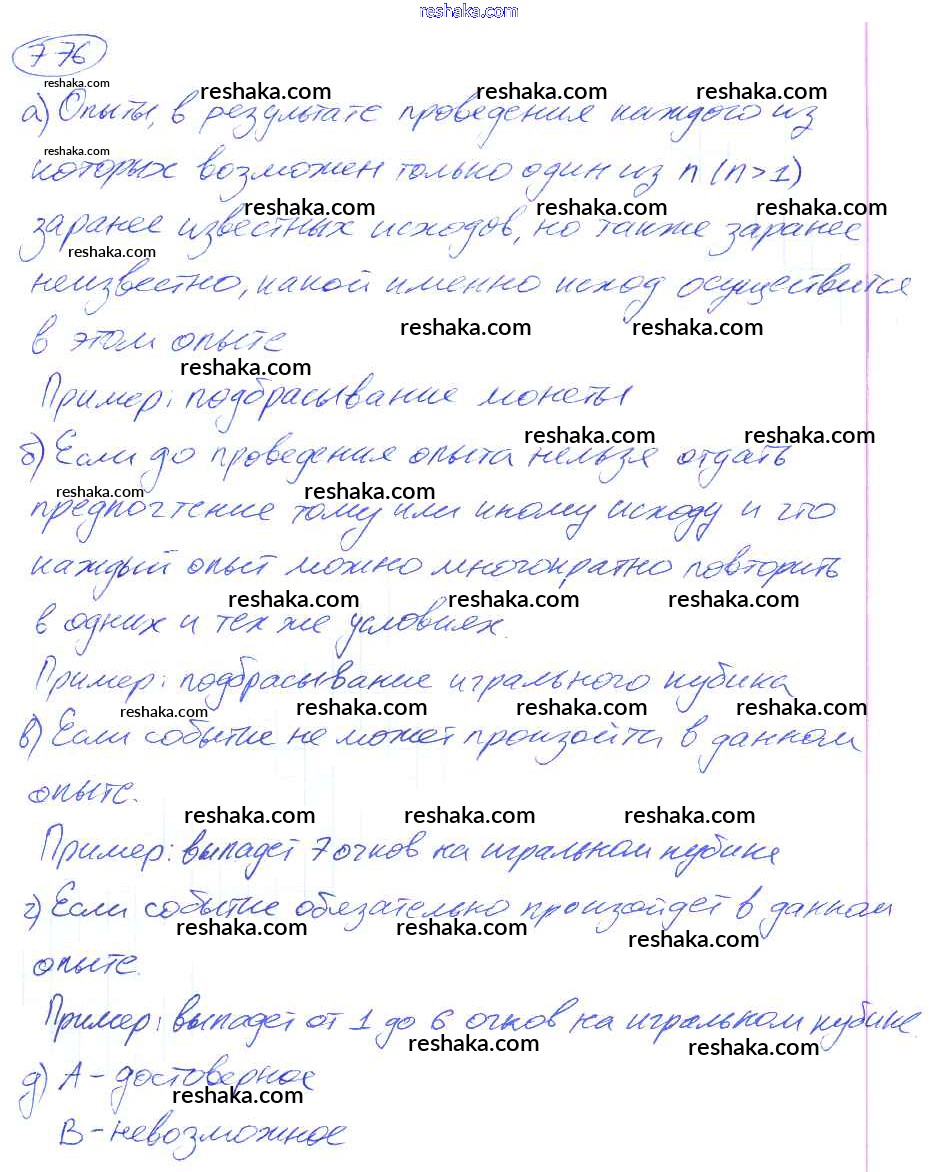 reshaka.com
776
reshaka.com reshaka.com reshaka.com reshaka.com
а) Опыты, в результате проведения каждого из
reshaka.com
которых возможен только один из n (n>1)
reshaka.com reshaka.com reshaka.com
заранее известных исходов, но также заранее
reshaka.com
неизвестно, какой именно исход осуществится
reshaka.com reshaka.com
в этом опыте
reshaka.com
Пример: подбрасывание монеты
reshaka.com reshaka.com
б) Если до проведения опыта нельзя отдать
reshaka.com reshaka.com
предпочтение тому или иному исходу и что
каждый опыт можно многократно повторить
reshaka.com reshaka.com reshaka.com
в одних и тех же условиях.
Пример: подбрасывание игрального кубика
reshaka.com reshaka.com reshaka.com reshaka.com
в) Если событие не может произойти в данном
опыте.
reshaka.com reshaka.com reshaka.com
Пример: выпадет 7 очков на игральном кубике
г) Если событие обязательно произойдет в данном
reshaka.com reshaka.com reshaka.com
опыте.
Пример: выпадет от 1 до 6 очков на игральном кубике.
reshaka.com reshaka.com
д) А – достоверное
reshaka.com
В – невозможное